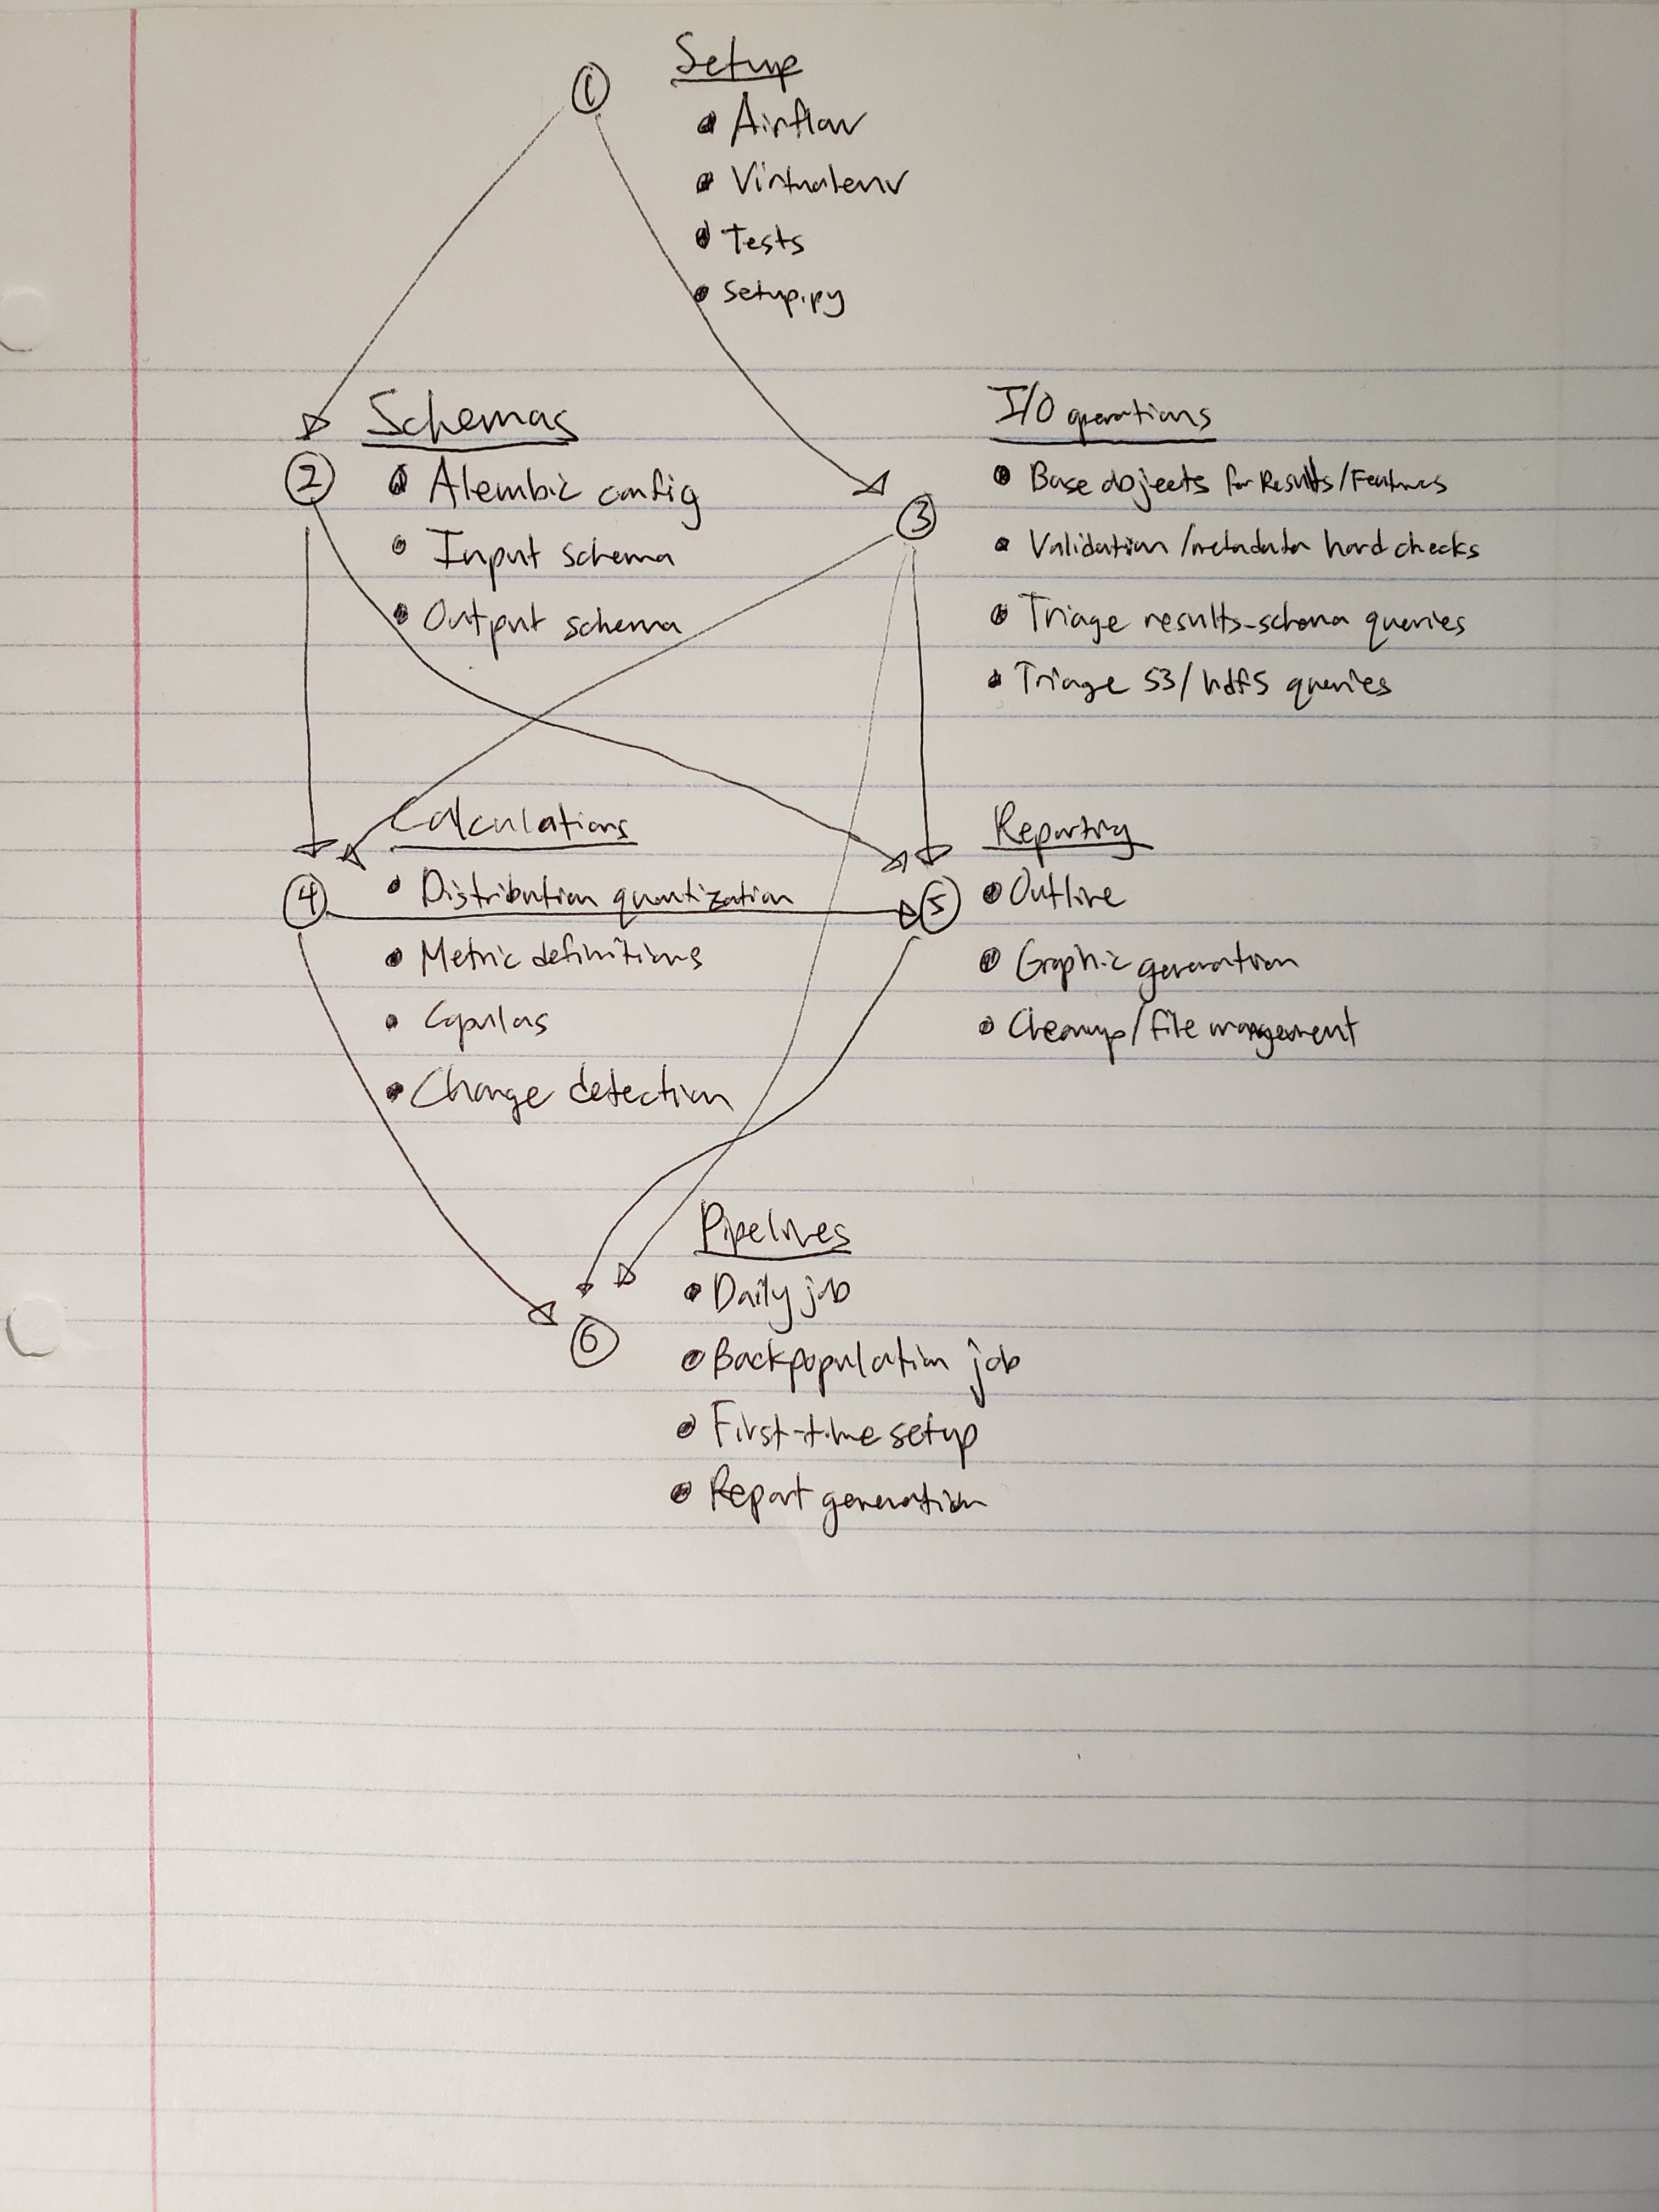 Setup
1
Airflow
Virtualenv
Tests
Setup.py
Schemas
2
Alembic config
Input schema
Output schema
I/O operations
3
Base objects for Results/Features
Validation/metadata hard checks
Triage results-schema queries
Triage S3/hdfs queries
Calculations
4
Distribution quantization
Metric definitions
Copulas
Change detection
Reporting
5
Outline
Graphic generation
Cleanup/file management
Pipelines
6
Daily job
Backpopulation job
First-time setup
Report generation